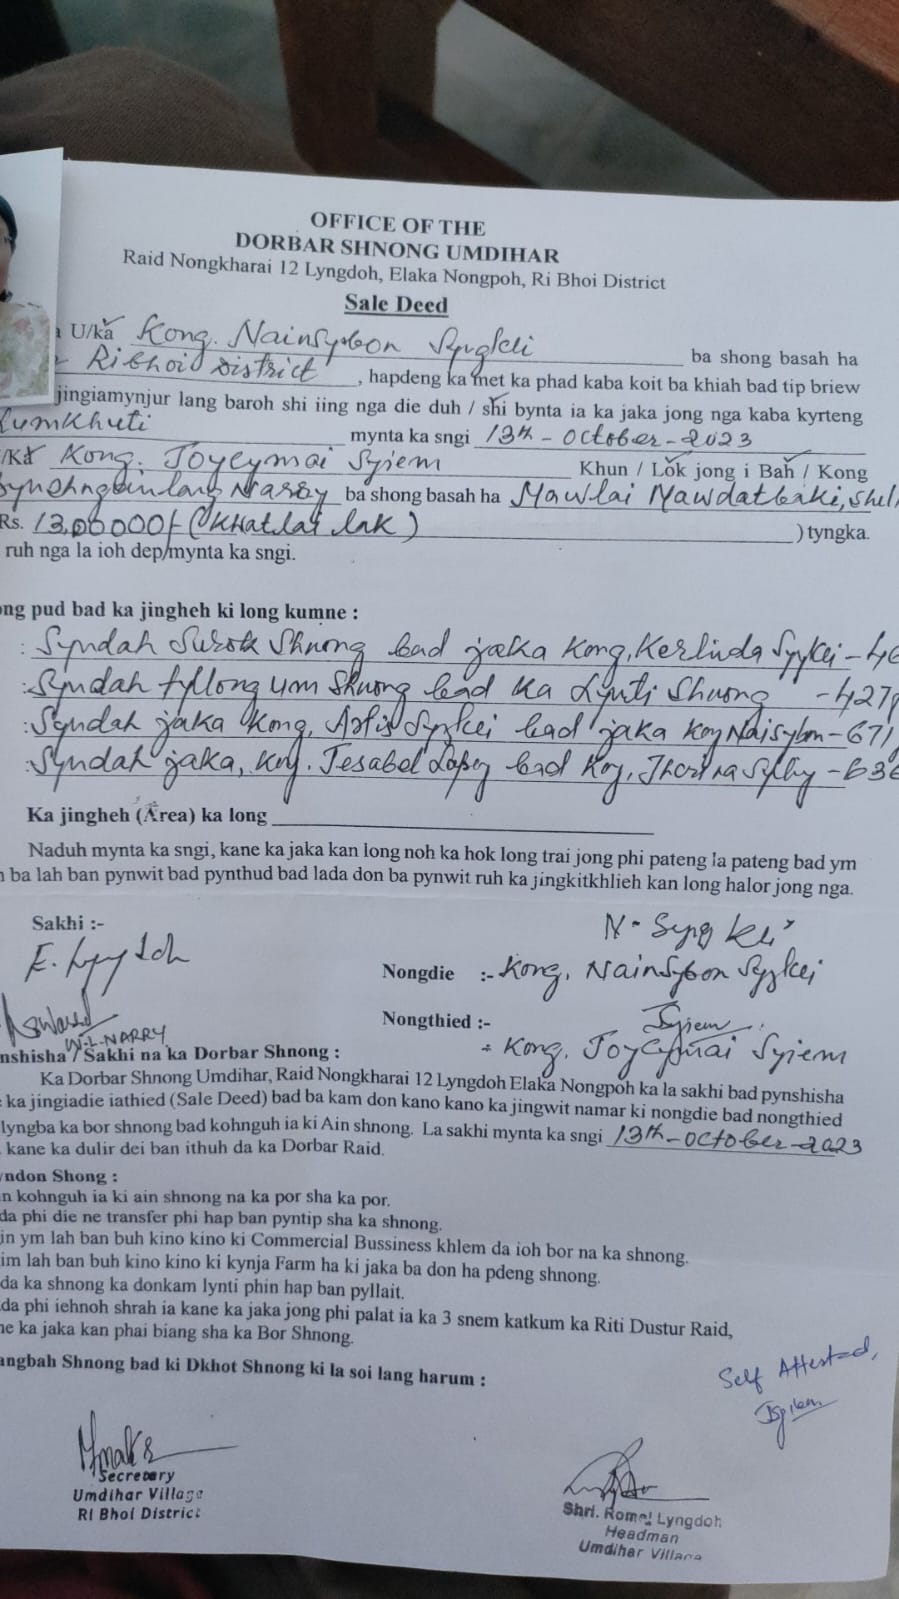 OFFICE OF THE
DORBAR SHNONG UMDIHAR
Raid Nongkharai 12 Lyngdoh, Elaka Nongpoh, Ri Bhoi District
Sale Deed
U/ka Kong. Nainsybon Syngkli ba shong basah ha
Ribhoi District, hapdeng ka met ka phad kaba koit ba khiah bad tip briew
jingiamynjur lang baroh shi iing nga die duh / shi bynta ia ka jaka jong nga kaba kyrteng
Lumkhuti mynta ka sngi 13th-October-2023
/Ka Kong. Joycymai Syiem Khun / Lok jong i Bah / Kong
Narry ba shong basah ha Mawlai Mawdatbaki,
Rs. 13,00000/- (Khatlai lak) tyngka.
ruh nga la ioh dep/mynta ka sngi.
pud bad ka jingheh ki long kumne :
: Syndah Surok Shnong bad jaka Kong, Kerlinda
: Syndah tyllong um Shnong bad ka Lynti Shnong -427
: Syndah jaka Kong. bad jaka -671
: Syndah jaka, Jesabel bad
Ka jingheh (Area) ka long
Naduh mynta ka sngi, kane ka jaka kan long noh ka hok long trai jong phi pateng la pateng bad ym
ba lah ban pynwit bad pynthud bad lada don ba pynwit ruh ka jingkitkhlieh kan long halor jong nga.
Sakhi :-
N. Syngkli
Nongdie :- Kong. Nainsybon
W.L. NARRY
Nongthied :- Jsyiem
- Kong. Joycymai Syiem
/ Sakhi na ka Dorbar Shnong :
Ka Dorbar Shnong Umdihar, Raid Nongkharai 12 Lyngdoh Elaka Nongpoh ka la sakhi bad pynshisha
ka jingiadie iathied (Sale Deed) bad ba kam don kano kano ka jingwit namar ki nongdie bad nongthied
lyngba ka bor shnong bad kohnguh ia ki Ain shnong. La sakhi mynta ka sngi 13th-October-2023
kane ka dulir dei ban ithuh da ka Dorbar Raid.
Shong :
kohnguh ia ki ain shnong na ka por sha ka por.
phi die ne transfer phi hap ban pyntip sha ka shnong.
ym lah ban buh kino kino ki Commercial Bussiness khlem da ioh bor na ka shnong.
lah ban buh kino kino ki kynja Farm ha ki jaka ba don ha pdeng shnong.
ka shnong ka donkam lynti phin hap ban pyllait.
phi iehnoh shrah ia kane ka jaka jong phi palat ia ka 3 snem katkum ka Riti Dustur Raid,
ka jaka kan phai biang sha ka Bor Shnong.
Shnong bad ki Dkhot Shnong ki la soi lang harum :
Self Attested,
Jsyiem
Secretary
Umdihar Village
Ri Bhoi District
Shri. Romel Lyngdoh
Headman
Umdihar Village